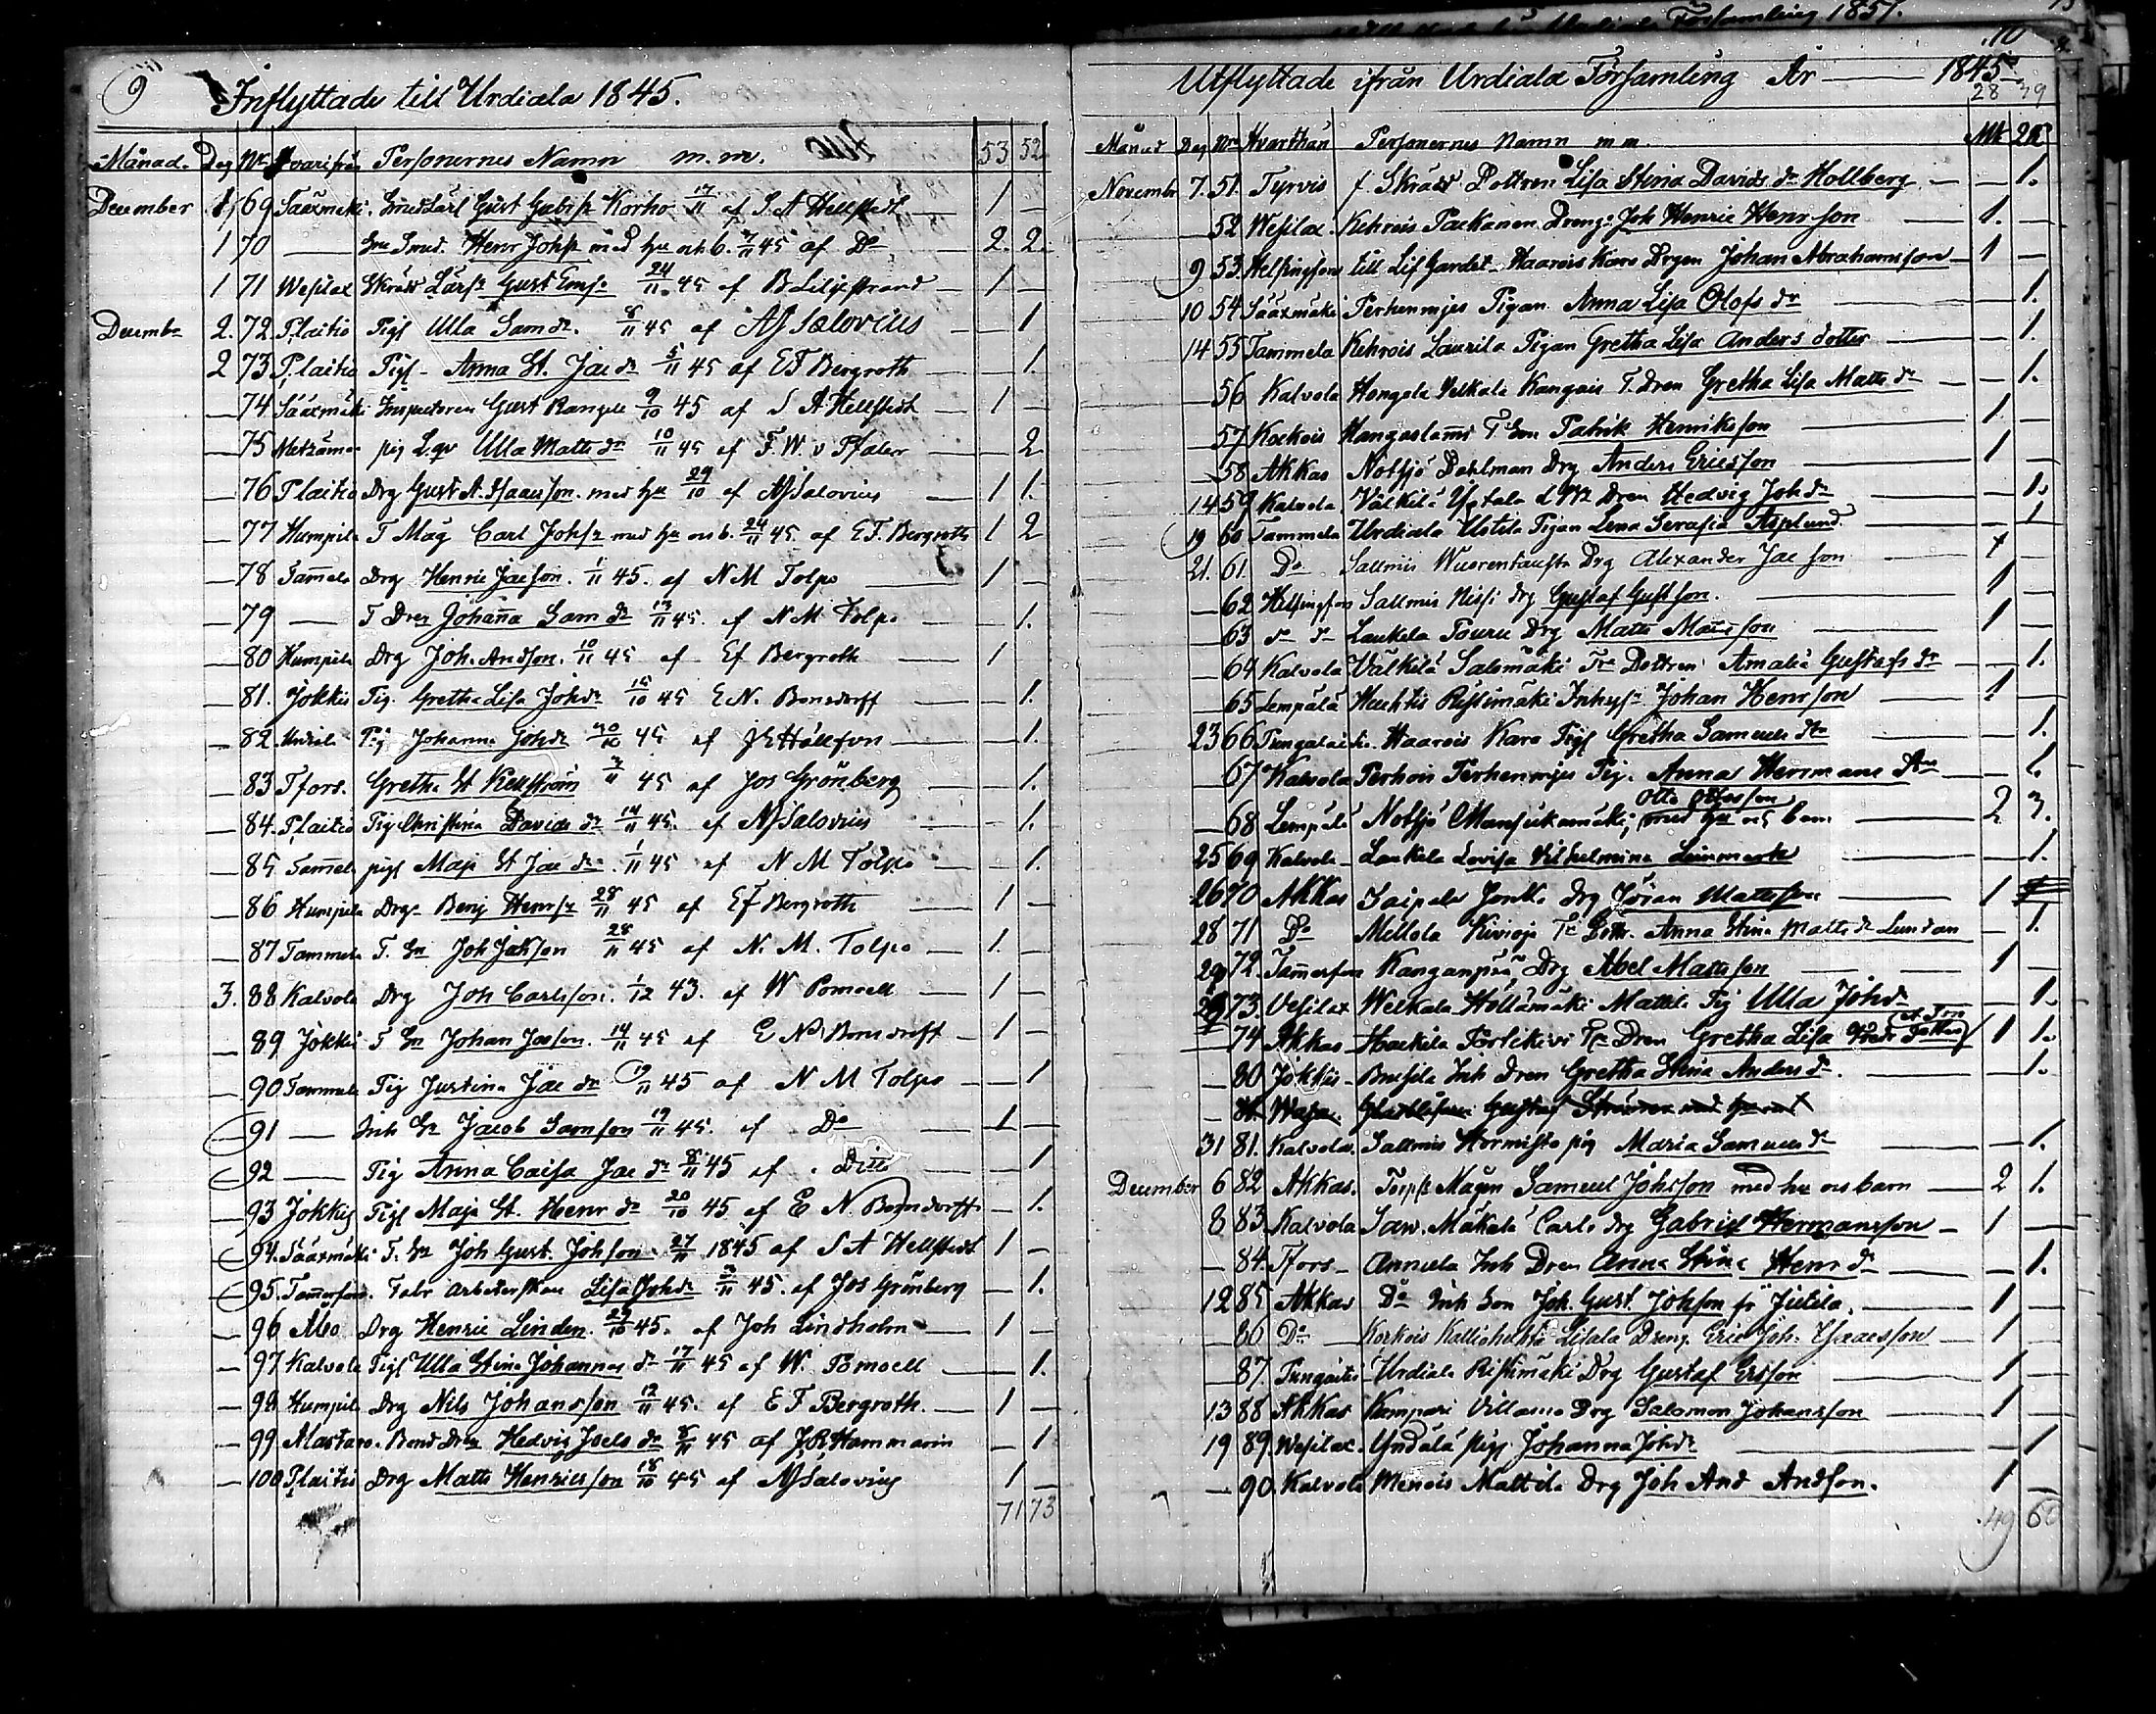 9
Inflyttade till Urdiala 1845.
Månad. Dag No Hvarifrån Personernes Namn m.m. 53 52
December 1 69 Sääxmäki. Gust Korho 17/11 af S A Hellstedt 1 —
1 70 — Henr Johss med hu och b. 45 af Do 2. 2.
1 71 Wesilax Skrädd Lärl. Gust Ems. 24/11 45 af B Liljestrand 1 —
Decembr 2. 72. P,laitio Pigs Ulla Sam dr. 8/11 45 af AJ Salovius — 1
2 73 P,laitio Pigs Anna St. Jac dr 5/11 45 af EF Bergroth — 1.
— 74 Sääxmäki Inspectoren Gust Rangell 9/10 45 af S A Hellstedt 1 —
— 75 pig Ulla Matts dr 10/11 45 af F. W. v Pfaler — 2
— 76 P laitio Drg Gust A. Isaacson. med hu 29/10 af AJ Salovius 1 1.
— 77 Humpila T Måg Carl Johss med hu och b. 24/11 45. af E F. Bergroth 1 2
— 78 Tamela Drg Henric Jacson. 1/11 45. af N M Tolpo 1 —
— 79 — T Dren Johanna Sam dr 13/11 45. af N M Tolpo — 1.
— 80 Humpila Drg Joh. Andson. 10/11 45 af Ef Bergroth 1
— 81. Jokkis Pig. Gretha Lisa Joh dr 15/10 45 E N. Bonsdorff — 1.
— 82. Urdiala Pig Johanna Joh dr 45 af — 1.
— 83 Tfors. Gretha St Kellström 45 af Jos Grönberg — 1.
— 84. P,laitio Pig Christina Davids dr 14/11 45. af AJ Salovius — 1.
— 85. Tamela pigs Maja St Jac dr. 1/11 45 af N M Tolpo — 1.
— 86 Humpila Drg. Benj Henrss 28/11 45 af Ef Bergroth 1 —
— 87 Tammela T. Sn Joh Jakson 28/11 45 af N. M. Tolpo 1. —
3. 88 Kalvola Drg Joh Carlsson. 1/12 43. af W Pomoell 1 —
— 89 Jokkis T Sn Johan Josson. 14/11 45 af E N Bonsdorff 1 —
— 90. Tammela Pig Justina Jac dr 19/11 45 af N M Tolpo — 1
— 91 — Inh Sn Jacob Samson 19/11 45. af Do 1 —
— 92 — Pig Anna Caisa Jac dr 8/11 45 af Ditto — 1
— 93 Jokkis Pigs Maja St. Henr dr 20/10 45 af E N. Bonsdorff — 1.
— 94. Sääxmäki T. Sn Joh Gust. Johson. 27/11 1845 af S A Hellstedt 1 —
— 95. Tammerfors. Fabr arbeterskan Lisa Joh dr 45. af Jos Grönberg — 1.
— 96 Åbo Drg Henric Linden. 29/10 45. af Joh Lindholm 1 —
— 97 Kalvola Pigs Ulla Stina Johannes dr 17/11 45 af W. Pomoell — 1.
— 98 Humpila Drg Nils Johansson 12/11 45. af E F Bergroth. 1 —
— 99 Mastaro. Bond Dren Hedvig Joels dr 8/11 45 af Hammarin — 1
— 100 P,laitio Drg Matts Henricsson 18/10 45 af AJ Salovius 1 —
71 73
Församling 1851.
10
Utflyttade ifrån Urdiala Församling År — 1845.
28 29
Månad Dag No Hvarthän Personernes Namn m m. Mk
November 7. 51. Tyrvis f Skrädd Dottren Lisa Stina Davids dr Hollberg — 1.
— 52 Wesilax Kehrois Packanen Dreng. Joh Henric Henrson 1. —
9 53. Helsingfors till Lif Gardet Haarois Karo Drgen Johan Abrahamsson 1 —
10 54 Sääxmäki Perhenmjes Pigan Anna Lisa Olofs dr — 1.
14 55 Tammela Kehrois Laurila Pigan Gretha Lisa Anders dotter — 1.
— 56 Kalvola Hongola T. Dren Gretha Lisa Matts dr — 1.
— 57 T Son Patrik Henriksson 1 —
— 58 Akkas Notsjö Dahlman Drg Anders Ericsson 1 —
14 59 Kalvola Välkilä Dren Hedvig Joh dr — 1.
19 60 Tammela Urdiala Ustila Pigan Lena Serafia Asplund. — 1
21. 61. Do Salmis Drg Alexander Jac son 1 —
— 62 Helsingfors Salmis Nissi drg Gustaf Gustson. 1 —
— 63 Laukela Touru Drg Matts Mattsson 1 —
— 64 Kalvola Välkilä Salomäki Tr. Dottren Amalia Gustafs dr — 1.
— 65 Lempälä Huhtis Ristimäki Inhys. Johan Henrson 1 —
23 66 Pungalaitio Haarois Karo Pigs Gretha Samuels dr — 1.
— 67 Kalvola Perhois Perhenmjes Pig. Anna Hermans dr — 1.
— 68 Lempälä Notsjö Otto Ottosson med hu och barn 2 3.
25 69 Kalvola Laukela Lovisa Vilhelmina Leinmark — 1.
26 70 Akkas Saipala Jontk. drg Jöran Mattsson 1
28 71 Do Mellola Kivioja Tr Dottr. Anna Stina Matts dr Lundan — 1.
29 72. Tammerfors Kanganpää Drg Abel Mattsson 1 —
29 73. Vesilax Welkala Hollämäki Mattila Pig Ulla Joh dr — 1.
— 74 Akkas Hackila Torlckivi Tr Dren Gretha Lisa 1 1.
— 80 Jokkis Inh Dren Gretha Stina Anders dr. — 1.
31 81. Kalvola. Salmis Hormisto pig Maria Samuels dr — 1.
December 6 82 Akkas. Torps Mågen Samuel Johsson med hu och barn 2 1.
8 83. Kalvola Saw. Mäkelä Carls drg Gabriel Hermansson 1 —
— 84. Tfors Annula Inh Dren Anna Stina Henr dr — 1.
12 85 Akkas Do Inh Son Joh. Gust. Johson fr Jutila. 1 —
— 86 Do Korkois Dreng Eric Joh. Isaacsson 1 —
— 87. Pungaitis Urdiala Ristimäki Drg Gustaf Ersson 1 —
13 88 Akkas Kampari Villamo Drg Salomon Johansson 1 —
19 89. Wesilax. Yndälä pigs Johanna Joh dr — 1
— 90. Kalvola Menois Mattila Drg Joh And Andson. 1 —
49 60